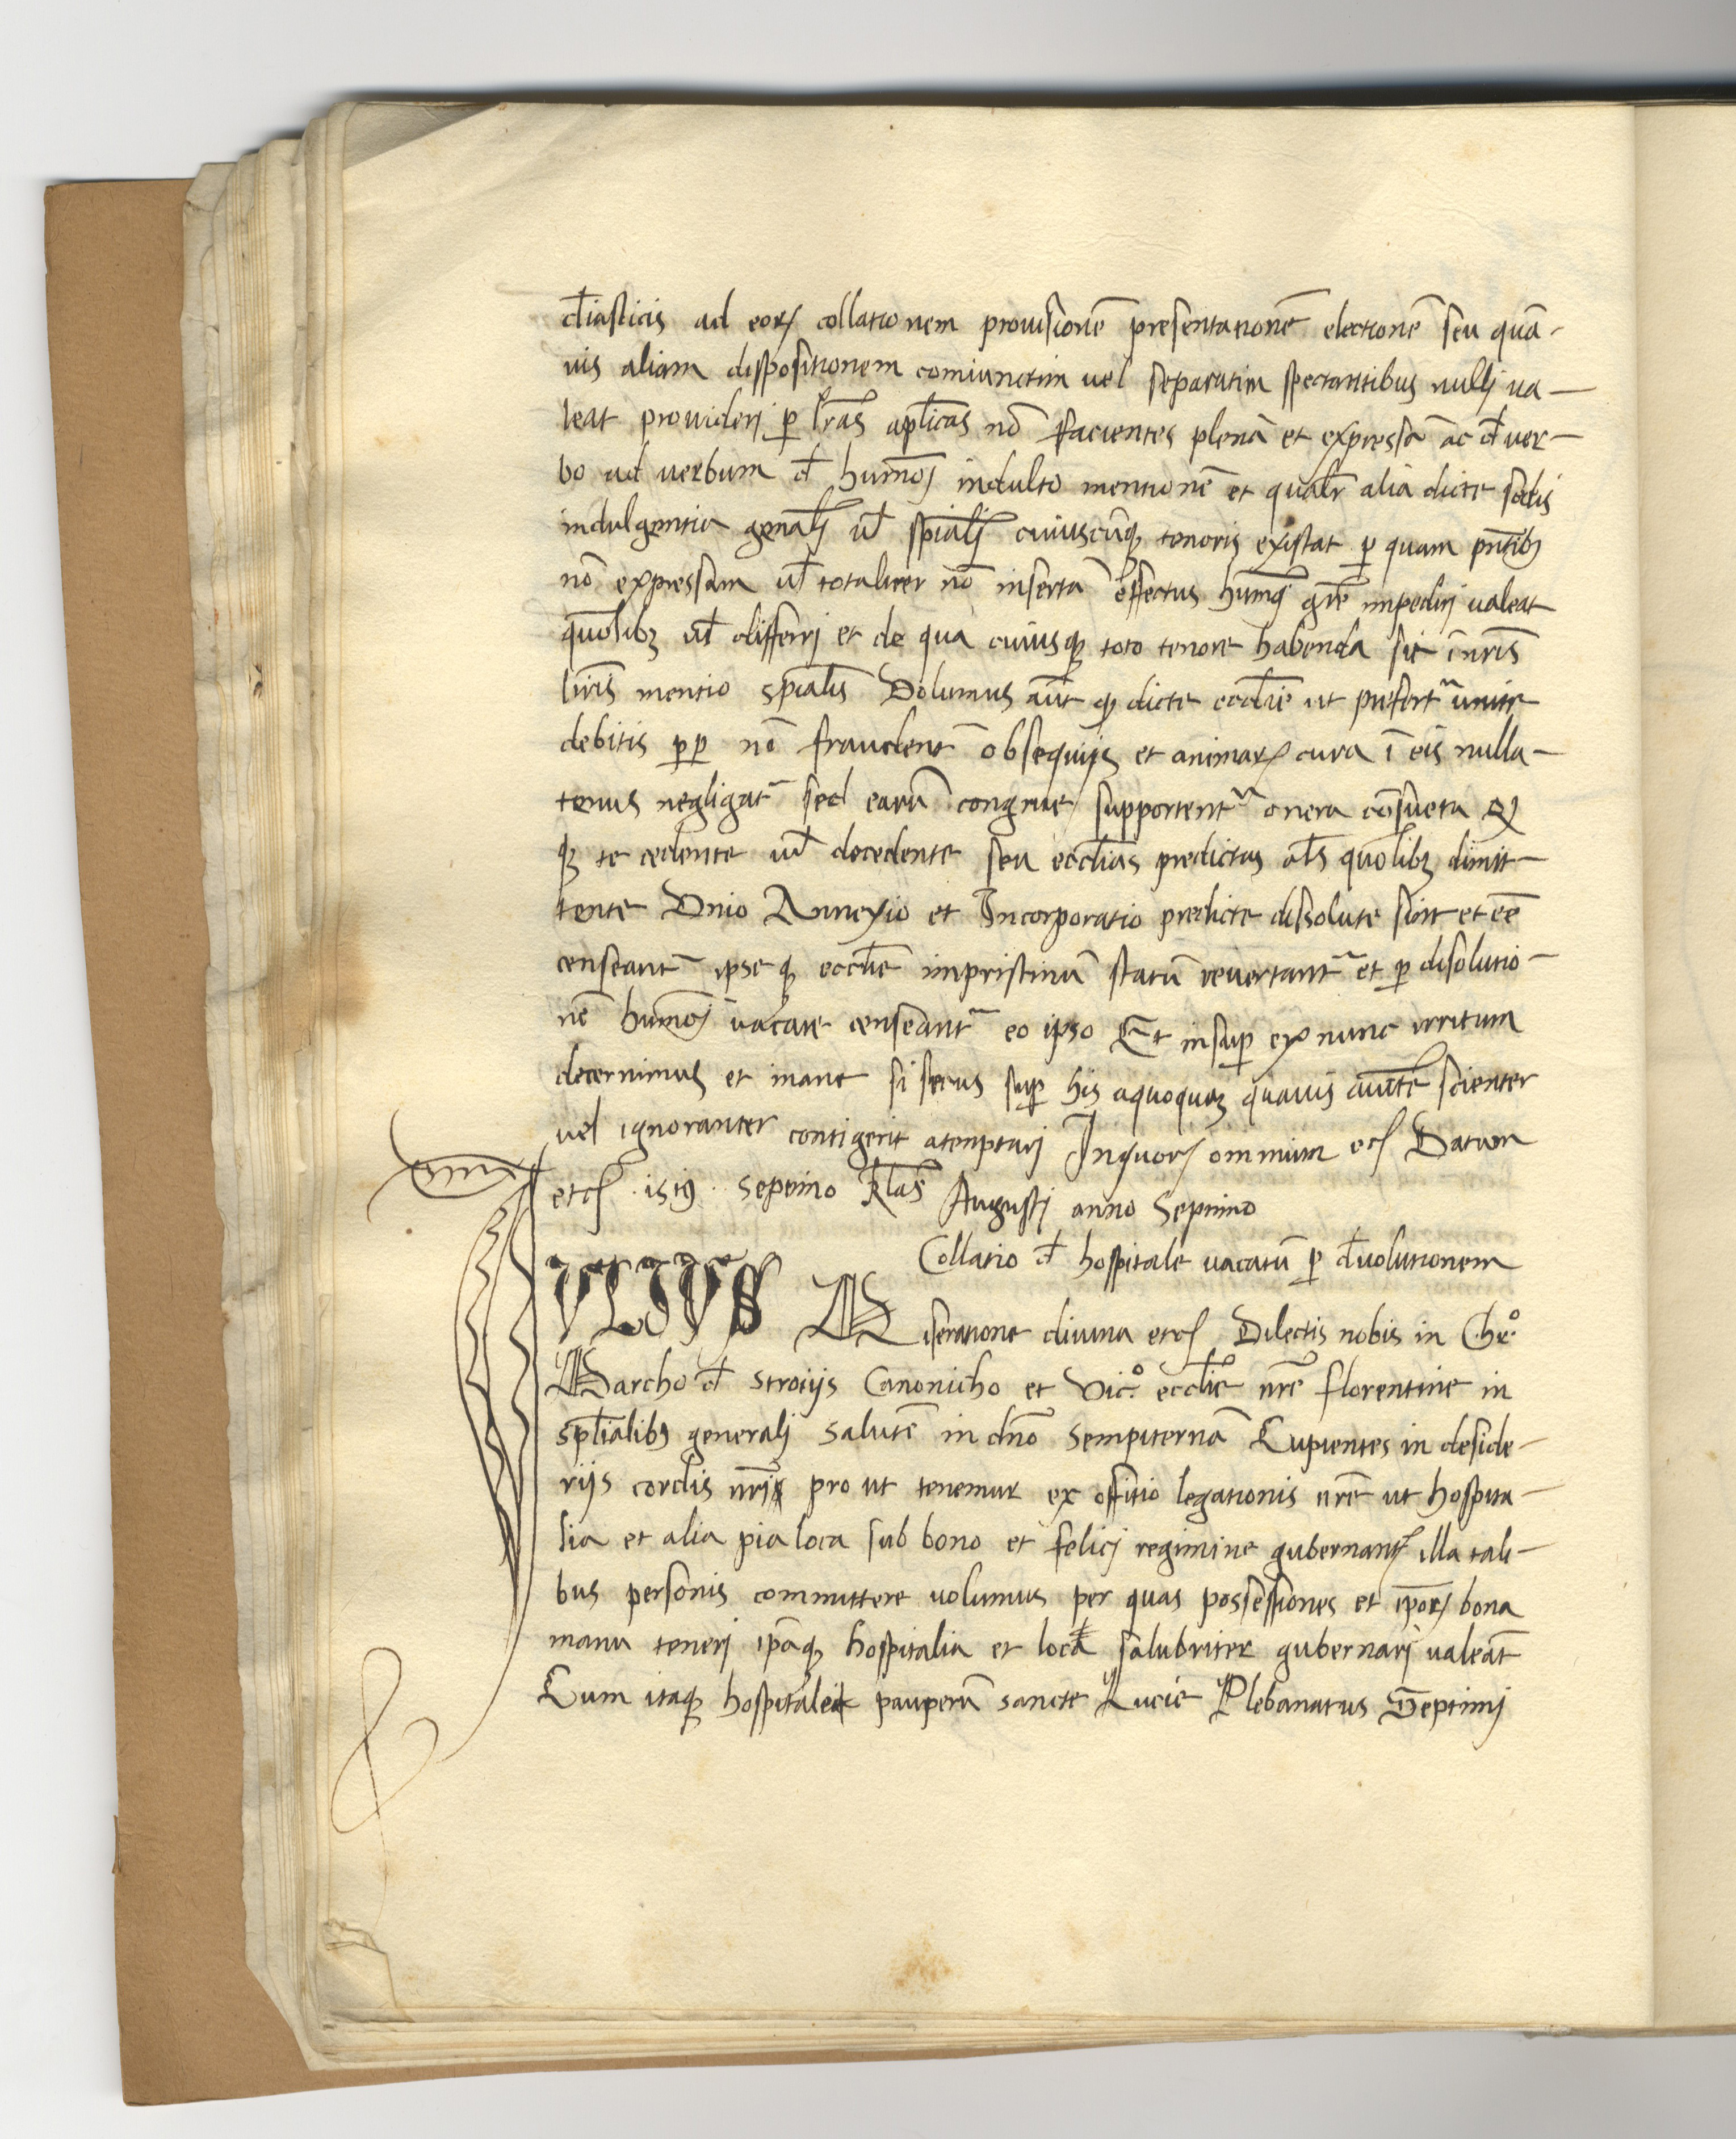 d̄iasticis ad eorꝝ collationem prouisionē presentationē electionē seu quā-
uis aliam dispositionem coniunctim uel separatim spectantibus nullj ua-
leat prouiderj ꝑ lr̄as apl̄icas nō facientes plenā et expressā ac đ uer-
bo ad verbum đ hum̄oj indulto mentionē et qual̄r alia dicte sedis
indulgentia gen̄alj ul̄ sp̄ialj cuiuscūqꝫ tenoris existat ꝑ quam pn̄tibꝫ
nō expressam ul̄ totaliter nō insertā effectus hum̄oj gr̄e impedirj valeat
quōlibꝫ ul̄ differrj et de qua cuiusqꝫ toto tenore habenda sit ī nr̄is
lr̄is mentio sp̄ialis Volumus aūt qꝫ dicte eccl̄ie ut prefertᷣ unite
debitis ꝓꝑ nō fraudent̄ obsequijs et animarꝝ cura ī eis nulla-
tenus negligatᷣ sed earū congrue supportentᷣ onera cōsueta Et
qꝫ te cedente ul̄ decedente seu eccl̄ias predictas al̄s quōlibꝫ dimit-
tente Vnio Annexio et Incorporatio predicte dissolute sint et eē̄
censeantᷣ ipse qꝫ eccl̄ie impristinū statū reuertantᷣ et ꝑ disolutio-
nē hum̄oj vacare censeantᷣ eo ipso Et insuꝑ ex nunc irritum
decernimus et inane si secus suꝑ his aquoquaꝫ quauis auc̄te scienter
uel ignoranter contigerit atenptarj Inquorꝝ omnium etcꝭ Datum
etcꝭ · 1519 · septimo Kl̄as Augustj anno Septimo
Collatio đ hospitale vacatū ꝑ đuolutionem
IVLIVS Miseratione diuina etcꝭ Dilectis nobis in Chr̊.
Marcho đ strotijs Canonicho et Vic̊. eccl̄ie nr̄e florentine in
sp̄lialibꝫ generalj Salutē in dn̄o Sempiternā Cupientes in deside-
rijs cordis nr̄is pro ut tenemur ex offitio legationis nr̄e ut hospita-
lia et alia pia loca sub bono et felicj regimine gubernant̄ illa tali-
bus personis committere volumus per quas possessiones et ip̄orꝝ bona
manu tenerj ip̄aqꝫ hospitalia et loca salubriter gubernarj valeāt
Cum itaqꝫ hospitale pauperū sancte Lucie Plebanatus Septimj